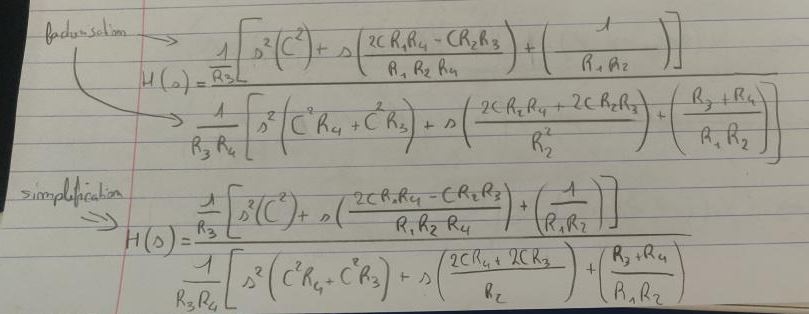 factorisation → 1/R₃ [ s²(C²) + s( (2CR₁R₄ - CR₂R₃) / (R₁R₂R₄) ) + ( 1 / (R₁R₂) ) ]
H(s) = ―――――――――
1/(R₃R₄) [ s²( C²R₄ + C²R₃ ) + s( (2CR₂R₄ + 2CR₂R₃) / R₂² ) + ( (R₃+R₄) / (R₁R₂) ) ]
simplification ⇒ 1/R₃ [ s²(C²) + s( (2CR₁R₄ - CR₂R₃) / (R₁R₂R₄) ) + ( 1 / (R₁R₂) ) ]
H(s) = ―――――――――
1/(R₃R₄) [ s²( C²R₄ + C²R₃ ) + s( (2CR₄ + 2CR₃) / R₂ ) + ( (R₃+R₄) / (R₁R₂) )